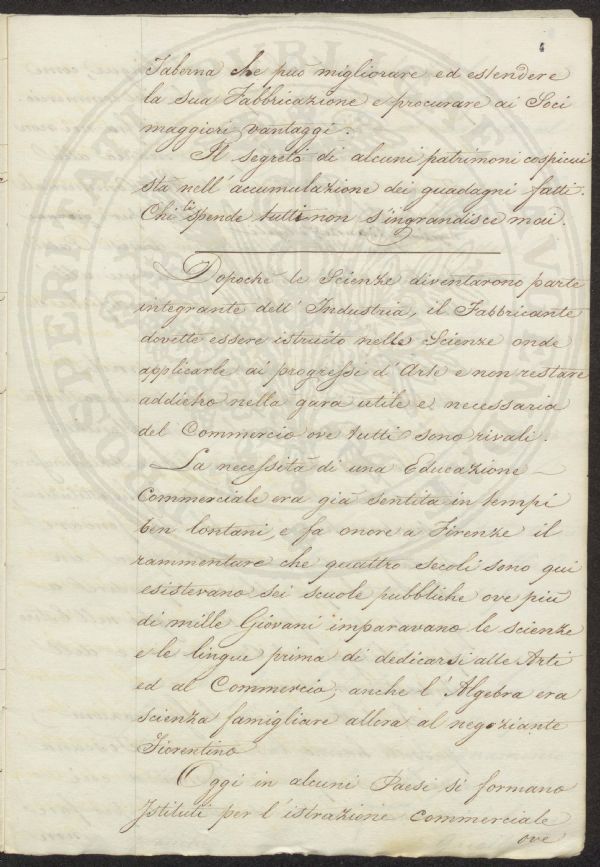 6
Taberna che può migliorare ed estendere
la sua Fabbricazione e procurare ai Soci
maggiori vantaggi.
Il segreto di alcuni patrimoni cospicui
stà nell'accumulazione dei guadagni fatti.
Chi li spende tutti non s'ingrandisce mai.
Dopochè le Scienze diventarono parte
integrante dell'Industria, il Fabbricante
dovette essere istruito nelle Scienze onde
applicarle ai progressi d'Arte e non restare
addietro nella gara utile e necessaria
del Commercio ove tutti sono rivali.
La necessità di una Educazione
Commerciale era già sentita in tempi
ben lontani, e fa onore a Firenze il
rammentare che quattro secoli sono qui
esistevano sei scuole pubbliche ove più
di mille Giovani imparavano le scienze
e le lingue prima di dedicarsi alle Arti
ed al Commercio, anche l'Algebra era
scienza famigliare allora al negoziante
Fiorentino
Oggi in alcuni Paesi si formano
Istituti per l'istrazione commerciale
ove